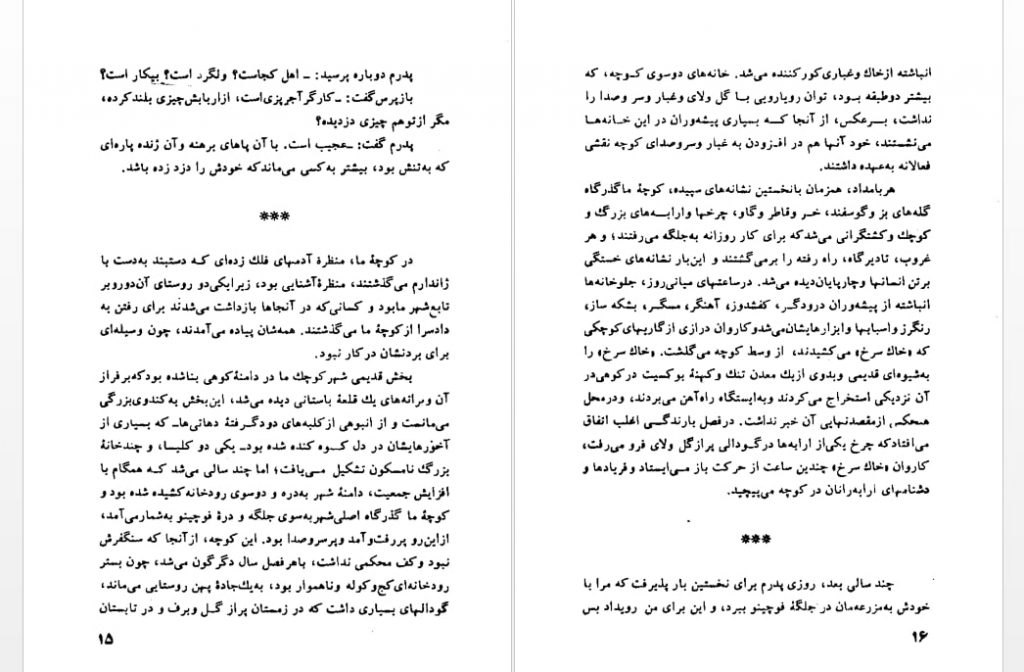 پدرم دوباره پرسید: ـ اهل کجاست؟ ولگرد است؟ بیکار است؟
بازپرس گفت: ـ کارگر آجرپزی است، از اربابش چیزی بلند کرده،
مگر از توهم چیزی دزدیده؟
پدرم گفت: ـ عجیب است. با آن پاهای برهنه و آن ژنده پاره‌ای
که به‌تنش بود، بیشتر به‌کسی می‌ماند که خودش را دزد زده باشد.
***
در کوچهٔ ما، منظرهٔ آدمهای فلک زده‌ای که دستبند به‌دست با
ژاندارم می‌گذشتند، منظرهٔ آشنایی بود، زیرا یکی دو روستای آن دوروبر
تابع شهر ما بود و کسانی که در آنجاها بازداشت می‌شدند برای رفتن به
دادسرا از کوچهٔ ما می‌گذشتند. همه‌شان پیاده می‌آمدند، چون وسیله‌ای
برای بردنشان در کار نبود.
بخش قدیمی شهر کوچک ما در دامنهٔ کوهی بنا شده بود که بر فراز
آن ویرانه‌های یک قلعهٔ باستانی دیده می‌شد، این بخش به‌کندوی بزرگی
می‌مانست و از انبوهی از کلبه‌های دودگرفتهٔ دهاتی‌ها ـ که بسیاری از
آخورهایشان در دل کوه کنده شده بود ـ یکی دو کلیسا، و چند خانهٔ
بزرگ نامسکون تشکیل می‌یافت؛ اما چند سالی می‌شد که همگام با
افزایش جمعیت، دامنهٔ شهر به‌دره و دوسوی رودخانه کشیده شده بود و
کوچهٔ ما گذرگاه اصلی شهر به‌سوی جلگه و درهٔ فوچینو به‌شمار می‌آمد،
از این رو پررفت‌وآمد و پرسروصدا بود. این کوچه، از آنجا که سنگفرش
نبود و کف محکمی نداشت، با هر فصل سال دگرگون می‌شد، چون بستر
رودخانه‌ای کج‌وکوله و ناهموار بود، به‌یک جادهٔ پهن روستایی می‌ماند،
گودالهای بسیاری داشت که در زمستان پر از گل و برف و در تابستان
۱۵
انباشته از خاک و غباری کورکننده می‌شد. خانه‌های دوسوی کوچه، که
بیشتر دوطبقه بود، توان رویارویی با گل ولای و غبار و سر وصدا را
نداشت، برعکس، از آنجا که بسیاری پیشه‌وران در این خانه‌ها
می‌نشستند، خود آنها هم در افزودن به غبار و سروصدای کوچه نقشی
فعالانه به‌عهده داشتند.
هر بامداد، همزمان با نخستین نشانه‌های سپیده، کوچهٔ ما گذرگاه
گله‌های بز و گوسفند، خر و قاطر و گاو، چرخها و ارابه‌های بزرگ و
کوچک و کشتگرانی می‌شد که برای کار روزانه به‌جلگه می‌رفتند؛ و هر
غروب، تا دیرگاه، راه رفته را برمی‌گشتند و این بار نشانه‌های خستگی
بر تن انسانها و چارپایان دیده می‌شد. در ساعتهای میانی روز، جلو خانه‌ها
انباشته از پیشه‌وران درودگر، کفشدوز، آهنگر، مسگر، بشکه ساز،
رنگرز و اسبابها و ابزارهایشان می‌شد و کاروان درازی از گاریهای کوچکی
که «خاک سرخ» می‌کشیدند، از وسط کوچه می‌گذشت. «خاک سرخ» را
به‌شیوه‌ای قدیمی و بدوی از یک معدن تنگ و کهنهٔ بوکسیت در کوهی در
آن نزدیکی استخراج می‌کردند و به‌ایستگاه راه‌آهن می‌بردند، و در محل
هیچکس از مقصد نهایی آن خبر نداشت. در فصل بارندگی اغلب اتفاق
می‌افتاد که چرخ یکی از ارابه‌ها در گودالی پر از گل ولای فرو می‌رفت،
کاروان «خاک سرخ» چندین ساعت از حرکت باز می‌ایستاد و فریادها و
دشنامهای ارابه‌رانان در کوچه می‌پیچید.
***
چند سالی بعد، روزی پدرم برای نخستین بار پذیرفت که مرا با
خودش به‌مزرعه‌مان در جلگهٔ فوچینو ببرد، و این برای من رویداد بس
۱۶